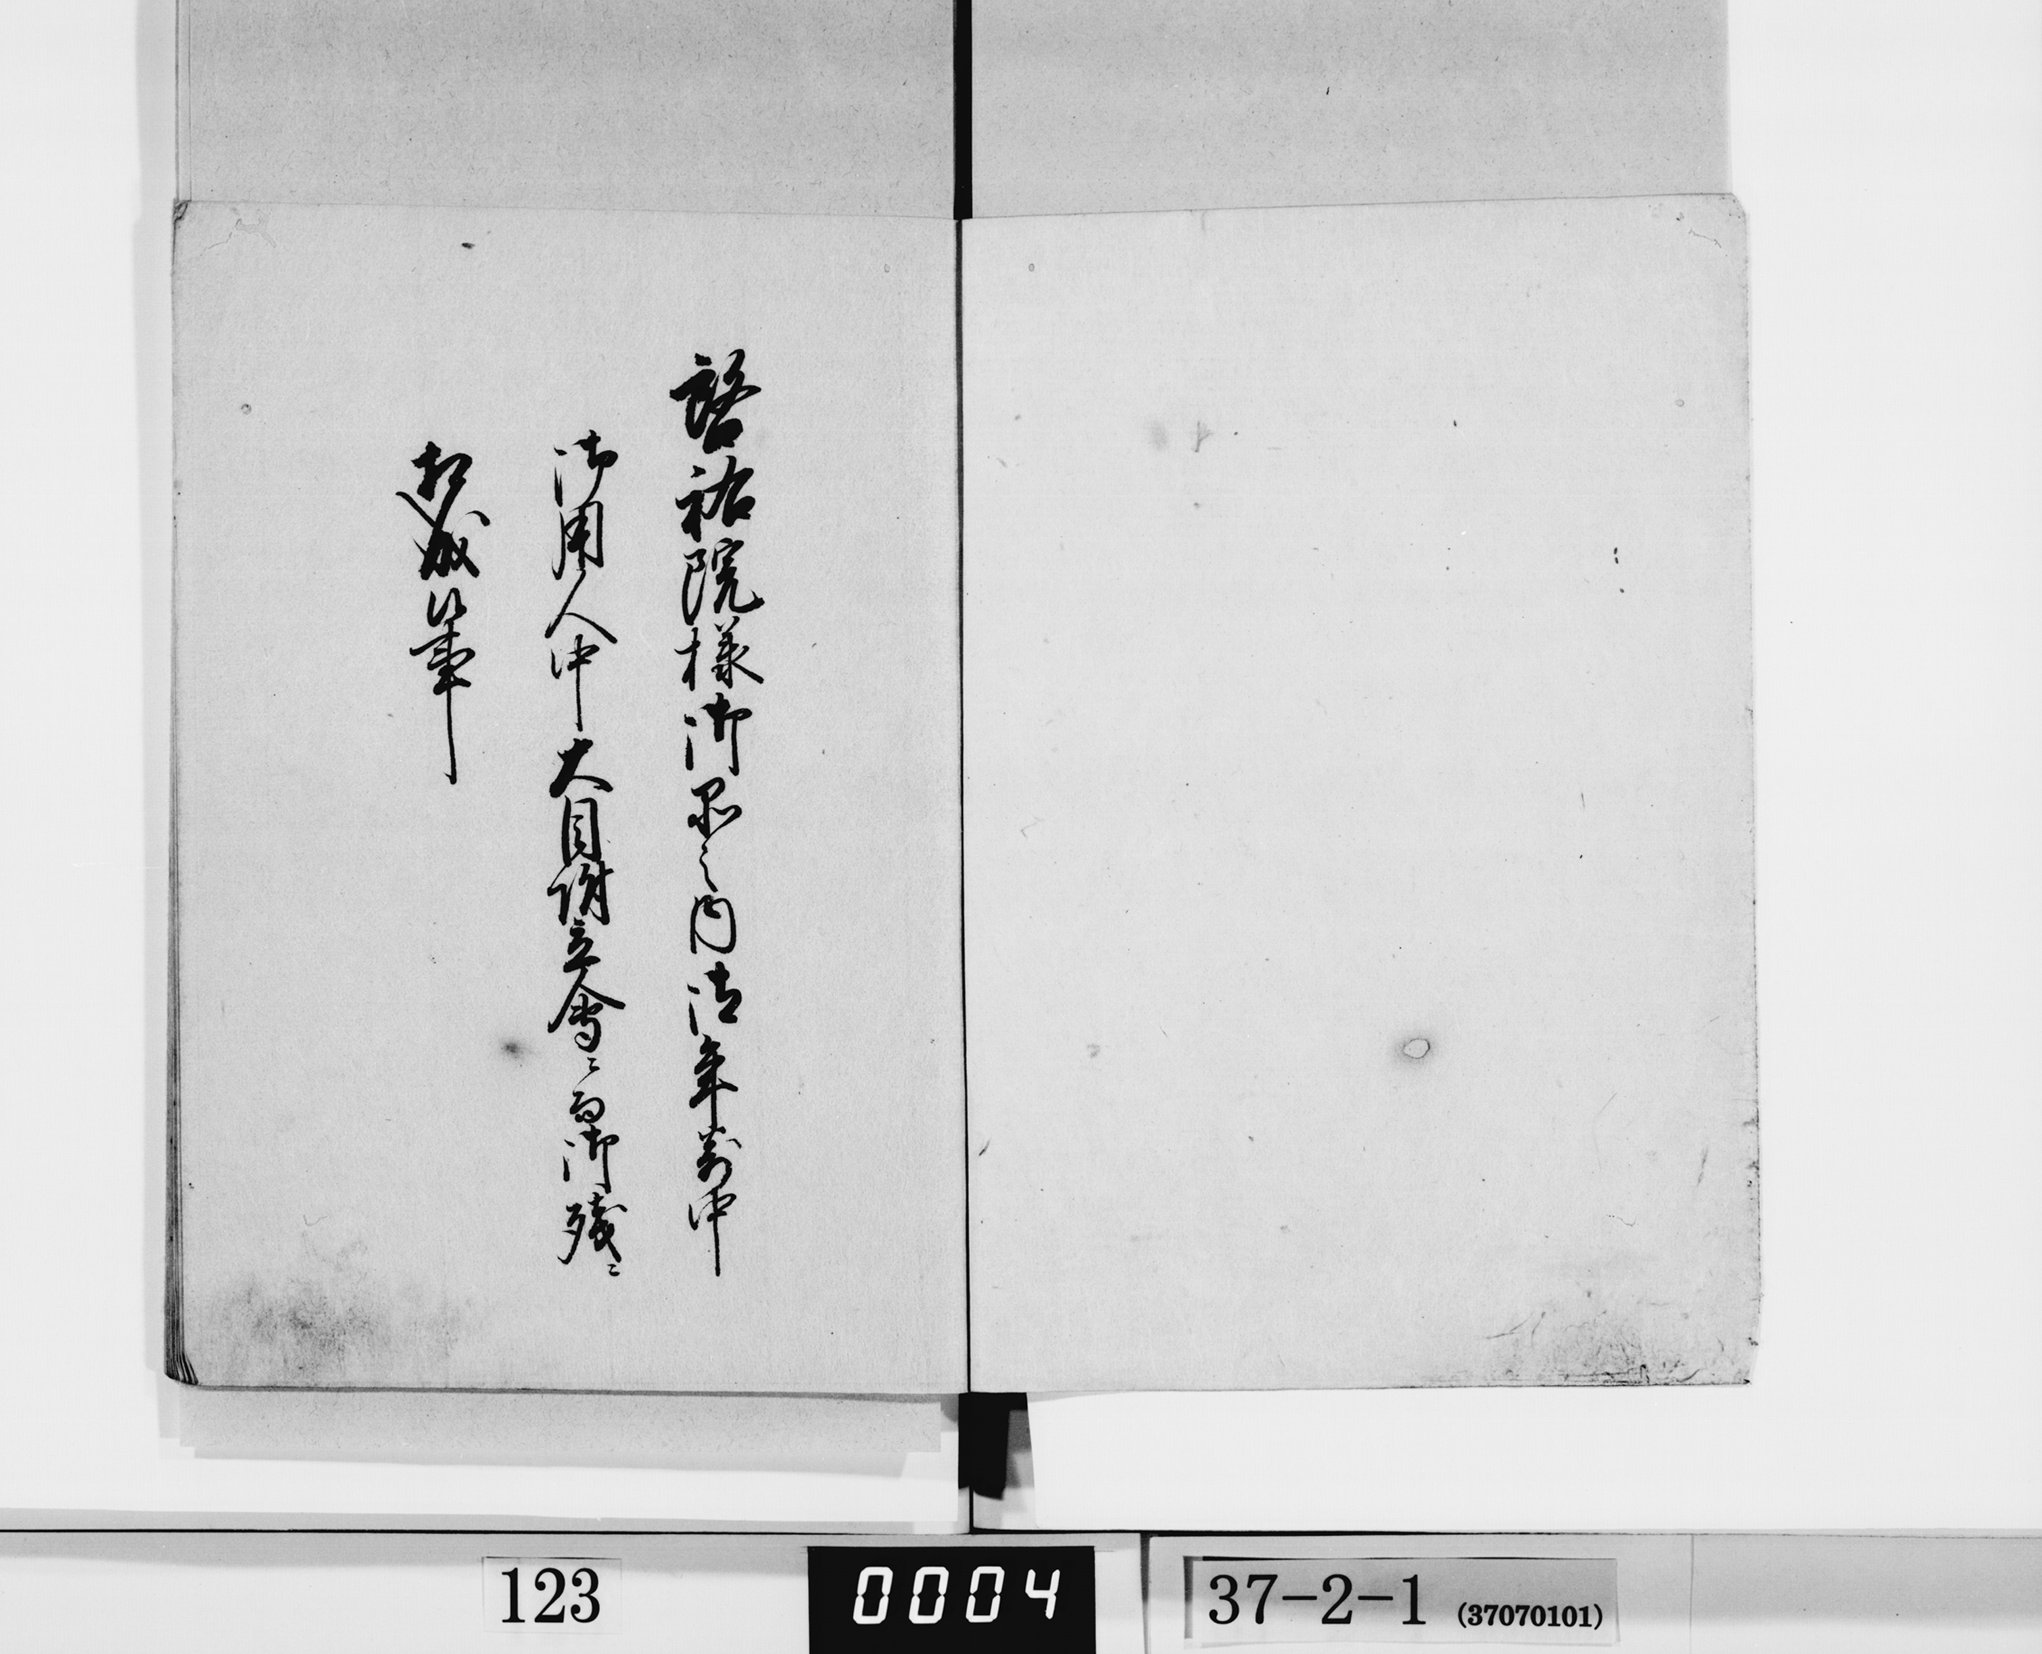 啓祐院様御品之内御年寄中
御用人中大目附立會ニ而御残ニ
相成候筆
123
0004
37-2-1 (37070101)